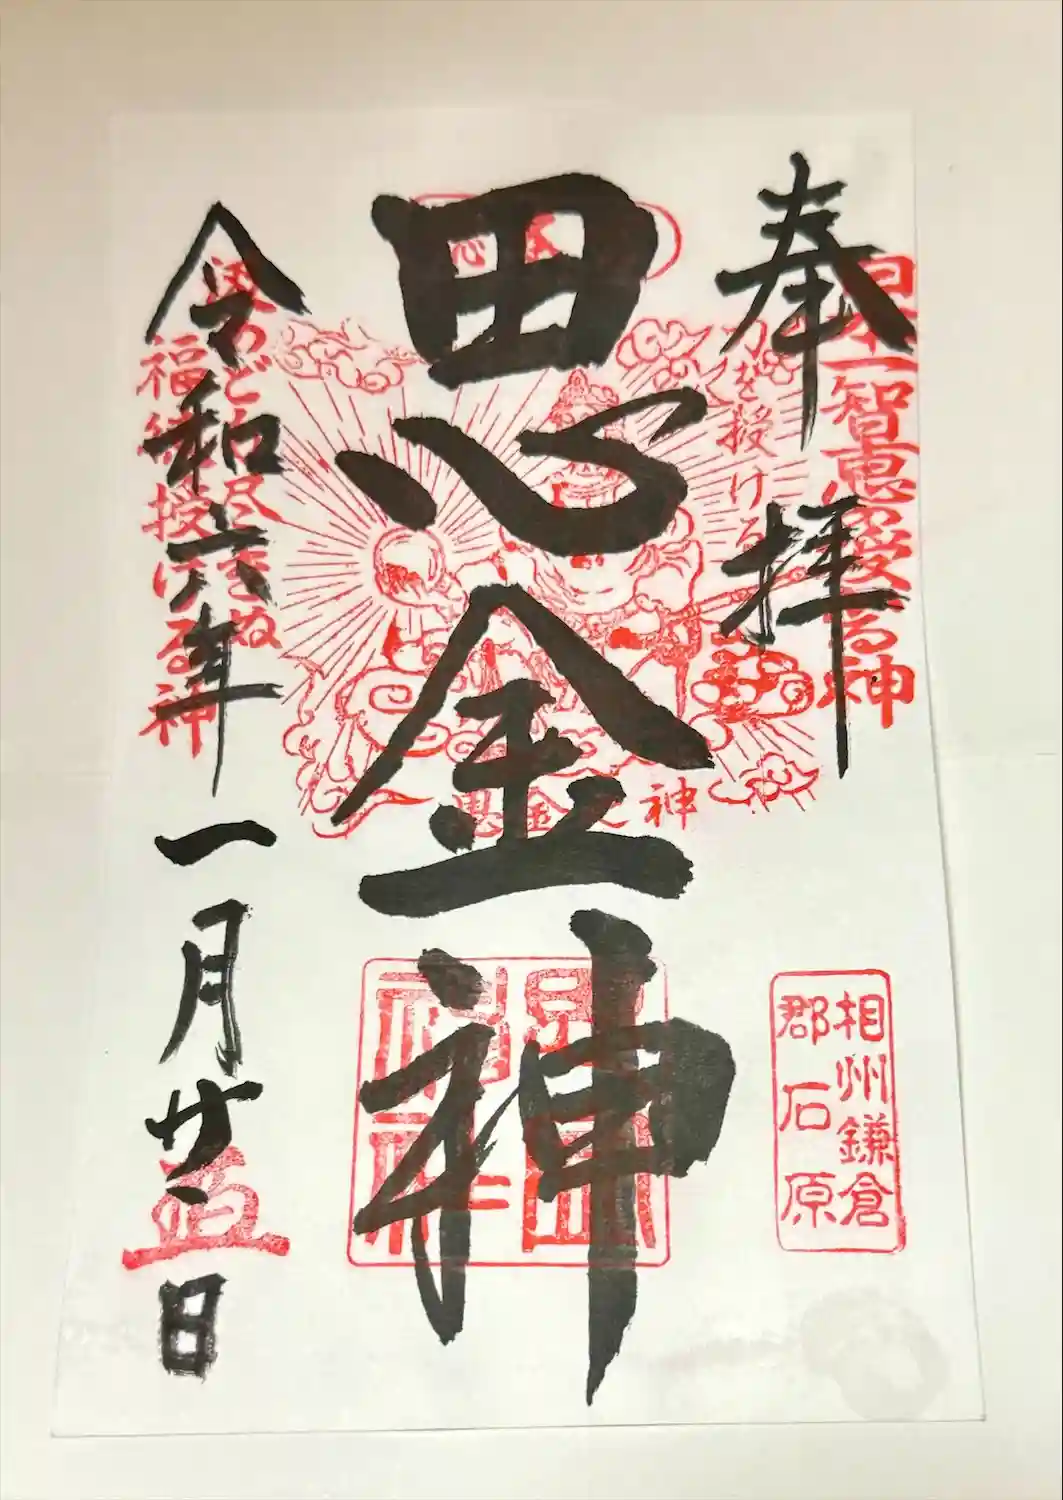 奉拝
日本一智恵を授ける神
力を授ける
思金神
思金之神
相州鎌倉
郡石原
令和六年一月廿五日
汲めども尽きぬ
福縁授ける神